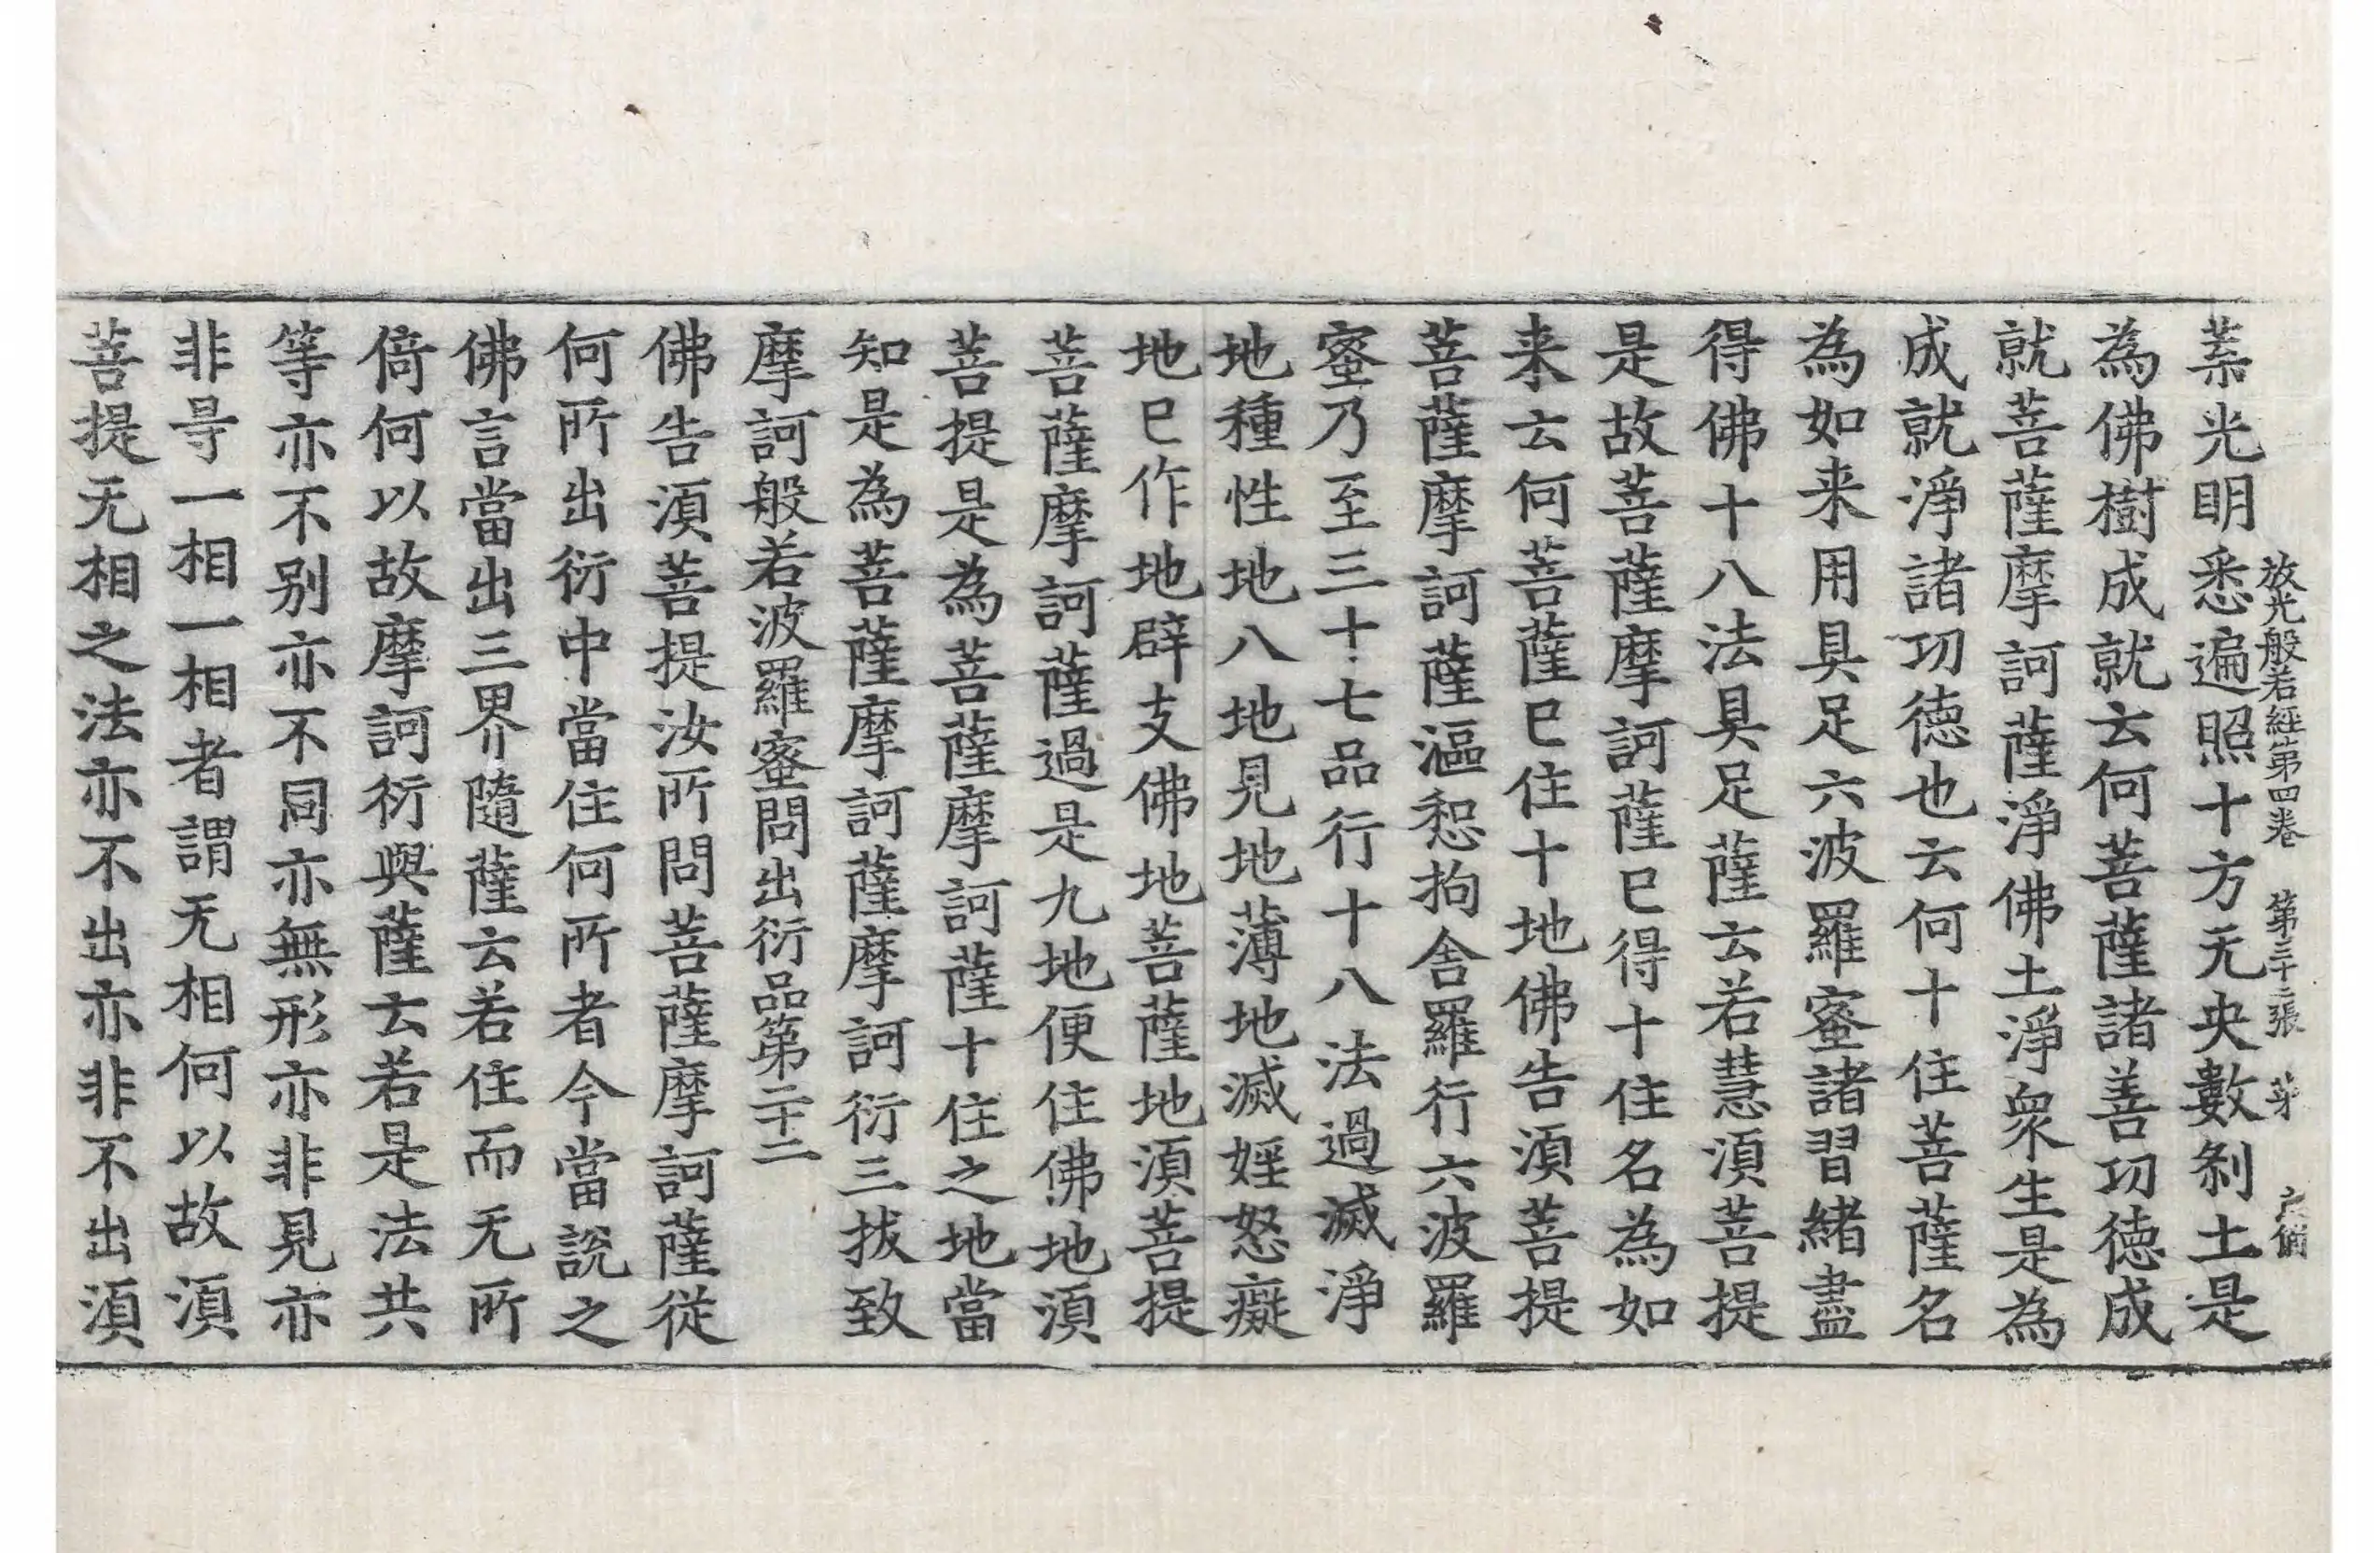 放光般若經第四卷 第三十二張 芥
葉光明悉遍照十方无央數剎土是
為佛樹成就云何菩薩諸善功德成
就菩薩摩訶薩淨佛土淨衆生是為
成就淨諸功德也云何十住菩薩名
為如来用具足六波羅蜜諸習緒盡
得佛十八法具足薩云若慧湏菩提
是故菩薩摩訶薩已得十住名為如
来云何菩薩已住十地佛告湏菩提
菩薩摩訶薩漚惒拘舍羅行六波羅
蜜乃至三十七品行十八法過滅淨
地種性地八地見地薄地滅婬怒癡
地已作地辟支佛地菩薩地湏菩提
菩薩摩訶薩過是九地便住佛地湏
菩提是為菩薩摩訶薩十住之地當
知是為菩薩摩訶薩摩訶衍三拔致
摩訶般若波羅蜜問出衍品第二十二
佛告湏菩提汝所問菩薩摩訶薩從
何所出衍中當住何所者今當說之
佛言當出三界隨薩云若住而无所
倚何以故摩訶衍與薩云若是法共
等亦不別亦不同亦無形亦非見亦
非㝵一相一相者謂无相何以故湏
菩提无相之法亦不出亦非不出湏